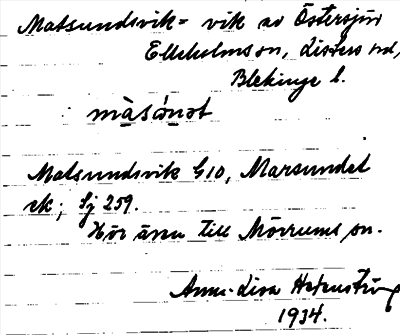 Matsundsvik = vik av Östersjön
Elleholms sn, Listers hd,
Blekinge l.
màsónot
Matsundsvik G10, Marsundet
ek; Sj 259.
Hör även till Mörrums sn.
Anna-Lisa
1934.